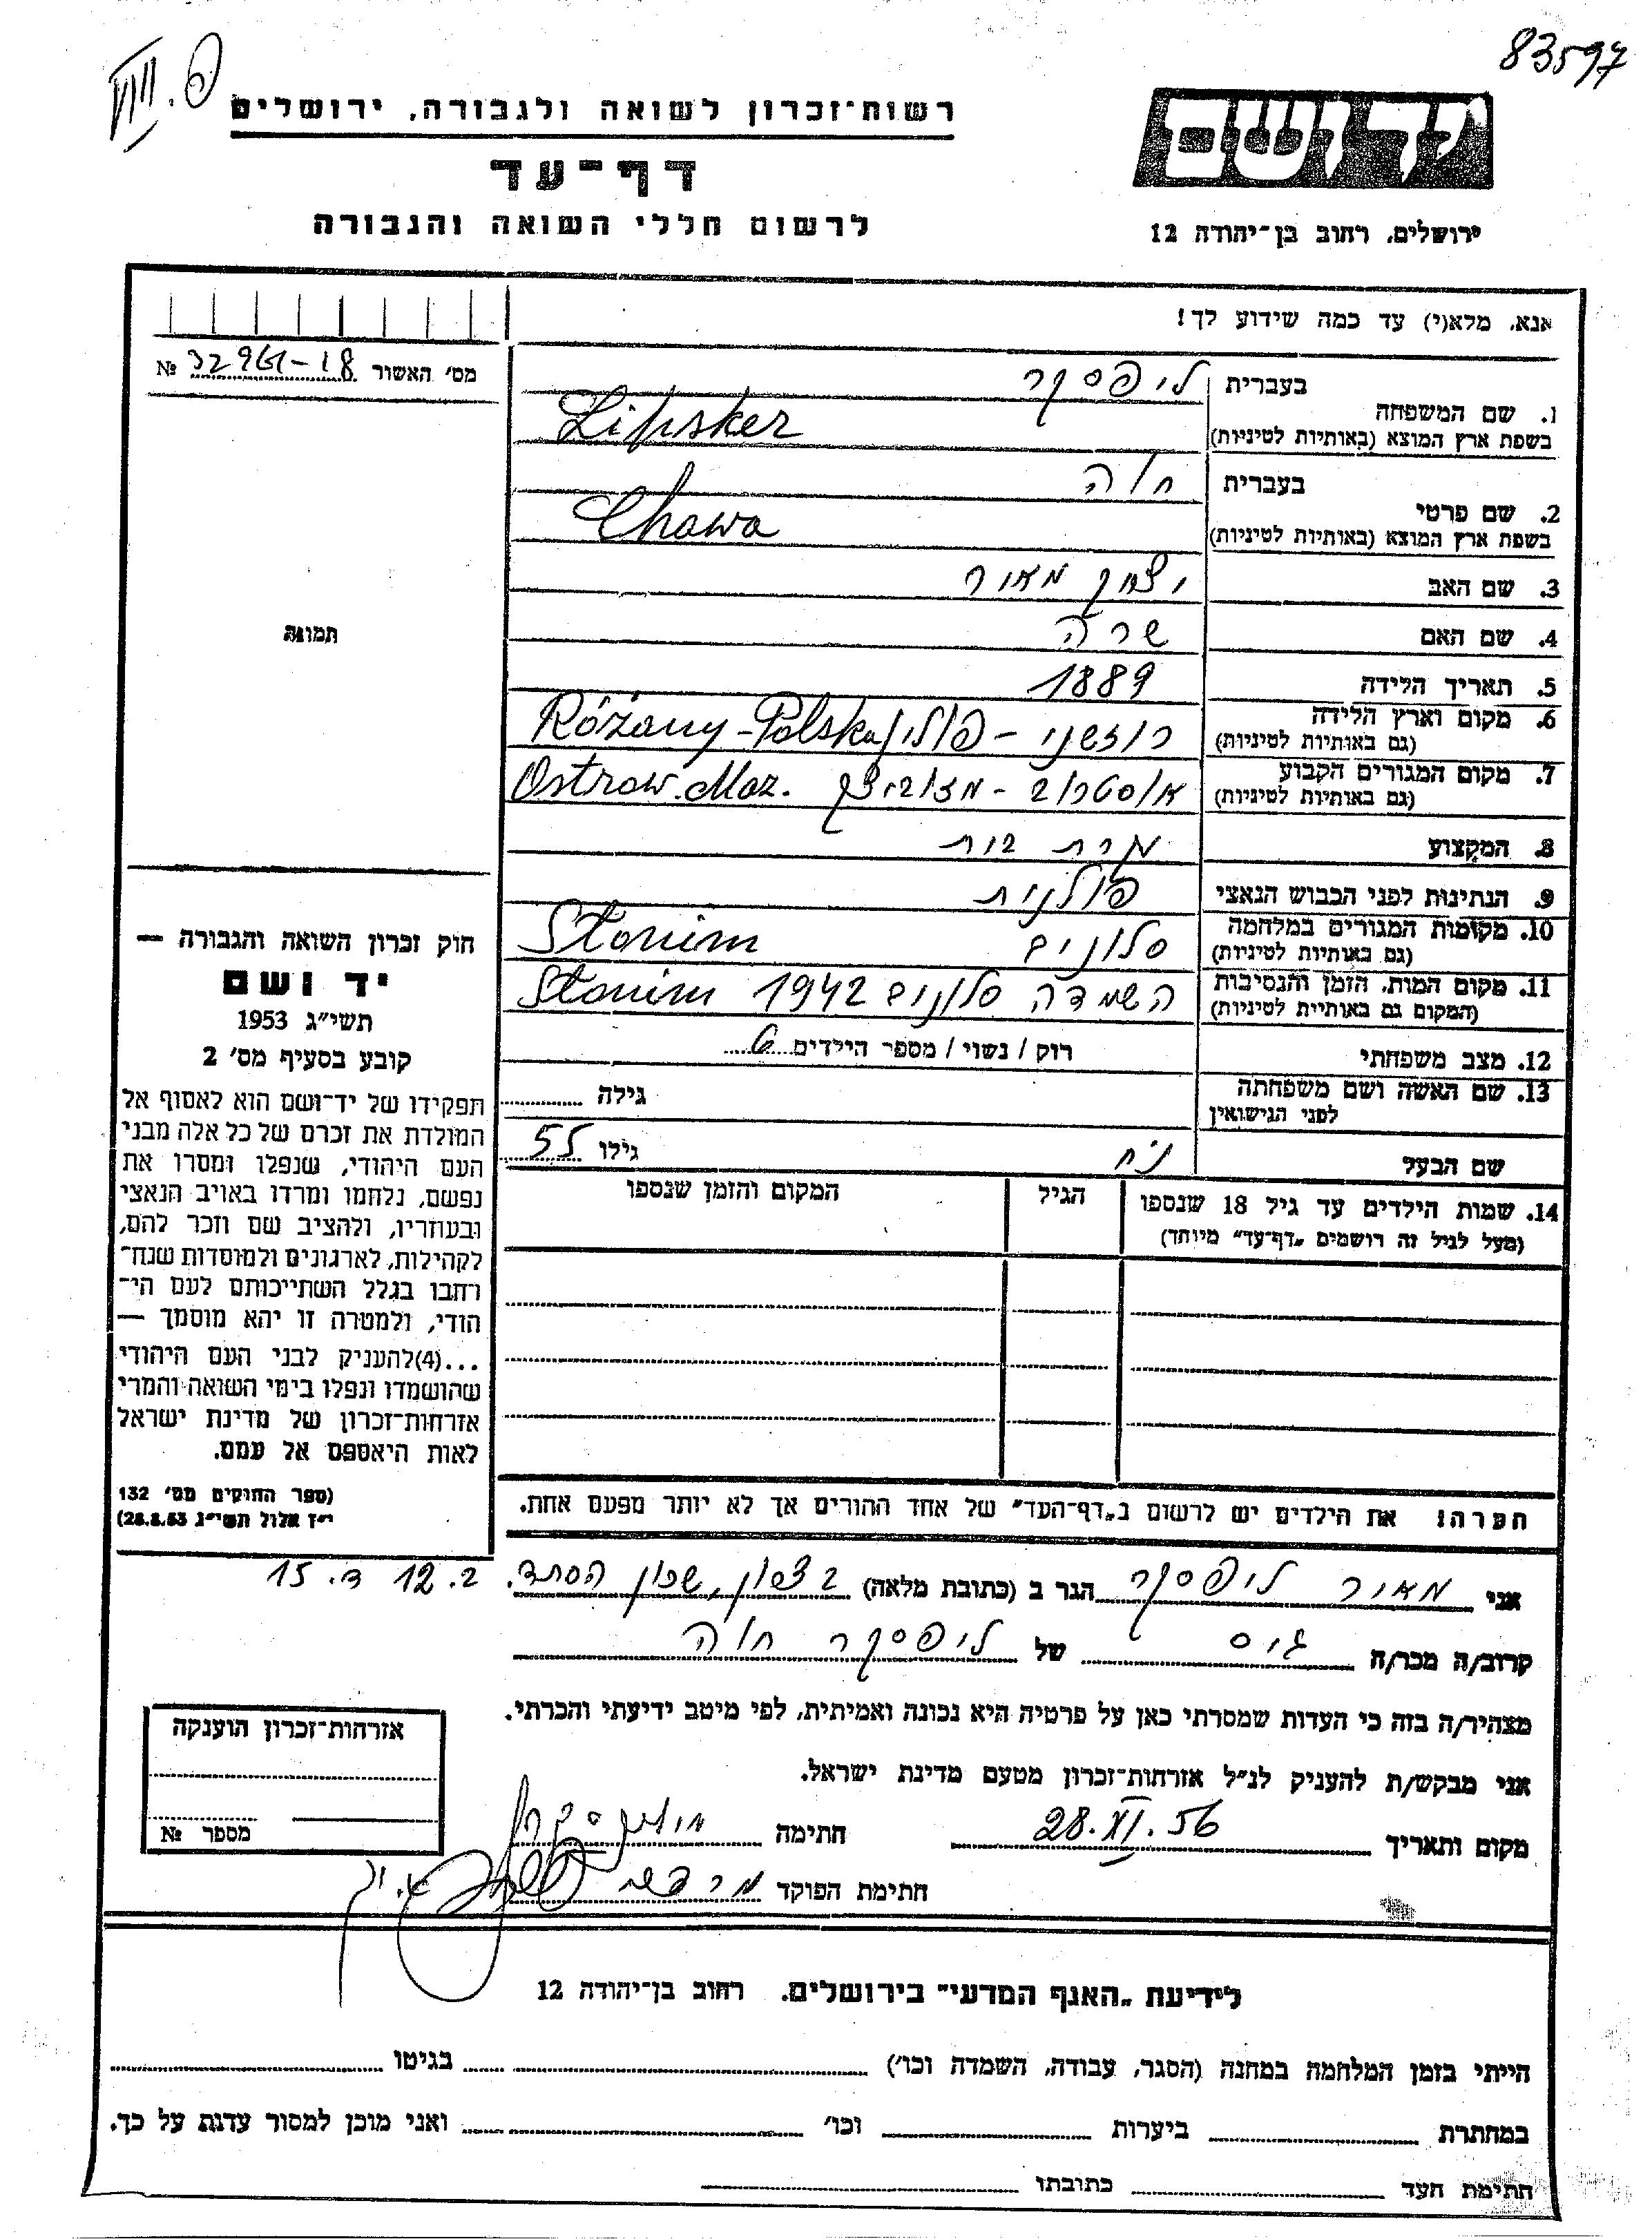 83597
VIII. פ
יד ושם
ירושלים, רחוב בן־יהודה 12
רשות־זכרון לשואה ולגבורה, ירושלים
דף־עד
לרשום חללי השואה והגבורה
אנא, מלא(י) עד כמה שידוע לך!
מס׳ האשור № 329
1. שם המשפחה
בעברית ליפסקר
בשפת ארץ המוצא (באותיות לטיניות) Lipsker
2. שם פרטי
בעברית חוה
בשפת ארץ המוצא (באותיות לטיניות) Chawa
3. שם האב יצחק מאיר
4. שם האם שרה
5. תאריך הלידה 1889
6. מקום וארץ הלידה רוזשני – פולין Różany – Polska
(גם באותיות לטיניות)
7. מקום המגורים הקבוע אוסטרוב – מזוביצק Ostrow. Maz.
(גם באותיות לטיניות)
8. המקצוע עקרת בית
9. הנתינות לפני הכבוש הנאצי פולנית
10. מקומות המגורים במלחמה סלונים Słonim
(גם באותיות לטיניות)
11. מקום המות, הזמן והנסיבות השמדה סלונים 1942 Słonim
(המקום גם באותיות לטיניות)
12. מצב משפחתי רוק / נשוי / מספר הילדים 6
13. שם האשה ושם משפחתה גילה
לפני הנישואין
שם הבעל נח גילו 55
14. שמות הילדים עד גיל 18 שנספו הגיל המקום והזמן שנספו
(מעל לגיל זה רושמים „דף־עד״ מיוחד)
הערה! את הילדים יש לרשום ב„דף־העד״ של אחד ההורים אך לא יותר מפעם אחת.
תמונה
חוק זכרון השואה והגבורה —
יד ושם
תשי״ג 1953
קובע בסעיף מס׳ 2
תפקידו של יד־ושם הוא לאסוף אל
המולדת את זכרם של כל אלה מבני
העם היהודי, שנפלו ומסרו את
נפשם, נלחמו ומרדו באויב הנאצי
ובעוזריו, ולהציב שם וזכר להם,
לקהילות, לארגונים ולמוסדות שנח־
רבו בגלל השתייכותם לעם הי־
הודי, ולמטרה זו יהא מוסמך —
...(4) להעניק לבני העם היהודי
שהושמדו ונפלו בימי השואה והמרי
אזרחות־זכרון של מדינת ישראל
לאות היאספם אל עמם.
(ספר החוקים מס׳ 132
י״ז אלול תשי״ג 28.8.53)
אני מאיר ליפסקר הגר ב (כתובת מלאה) , שכון הסתד. ב. 12 ד. 15
קרוב/ה מכר/ה גיס של ליפסקר חוה
מצהיר/ה בזה כי העדות שמסרתי כאן על פרטיה היא נכונה ואמיתית, לפי מיטב ידיעתי והכרתי.
אני מבקש/ת להעניק לנ״ל אזרחות־זכרון מטעם מדינת ישראל.
מקום ותאריך 28.XI.56 חתימה
חתימת הפוקד
אזרחות־זכרון הוענקה
מספר №
לידיעת „האגף המדעי״ בירושלים. רחוב בן־יהודה 12
הייתי בזמן המלחמה במחנה (הסגר, עבודה, השמדה וכו׳) בגיטו
במחתרת ביערות וכו׳ ואני מוכן למסור עדות על כך.
חתימת העד כתובתו